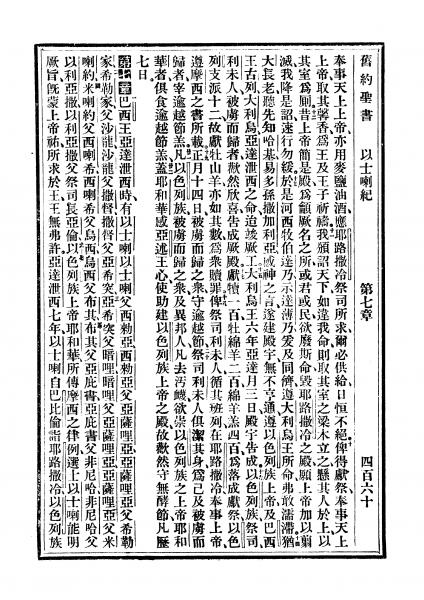 舊約聖書 以士喇紀 第七章 四百六十
奉事天上上帝亦用麥鹽油酒應耶路撒冷祭司所求爾必供給日恒不絕俾得獻祭奉事天上
上帝取其馨香爲王及王子祈禱我頒詔天下如違我命則取其室之梁木立之懸其人於上以
其室爲厠昔上帝簡是殿爲籲厥名之所或君或民欲廢斯命毀耶路撒冷之殿願上帝加以翦
滅我降是詔速行勿緩於是河西牧伯達乃示達薄乃爰及同儕遵大利烏王所命弗敢濡滯猶
大長老聽先知哈基易多孫撒加利亞感神之言遂建殿宇無不亨通遵以色列族上帝及巴西
王古列大利烏亞達泄西之命迨竣厥工大利烏王六年亞達月三日殿宇告成以色列族祭司
利未人被虜而歸者歡然欣喜告成厥殿獻犢一百牡綿羊二百綿羊羔四百爲落成獻祭以色
列支派十二故獻牡山羊亦如其數爲衆贖罪俾祭司利未人循其班列在耶路撒冷奉事上帝
遵摩西之書所載正月十四日被虜而歸之衆守逾越節祭司利未人俱潔其身爲己及被虜而
歸者宰逾越節羔凡以色列族被虜而歸之衆及異邦人凡去污衊欲崇以色列族之上帝耶和
華者俱食逾越節羔蓋耶和華感亞述王心使助建以色列族上帝之殿故歡然守無酵節凡歷
七日
第七章 巴西王亞達泄西時有以士喇以士喇父西勑亞西勑亞父亞薩哩亞亞薩哩亞父希勒
家希勒家父沙龍沙龍父撒督撒督父亞希突亞希突父暗哩暗哩父亞薩哩亞亞薩哩亞父米
喇約米喇約父西喇希西喇希父烏西烏西父布其布其父亞庇書亞庇書父非尼哈非尼哈父
以利亞撒以利亞撒父祭司長亞倫以色列族上帝耶和華所傳摩西之律例選士以士喇能明
厥旨旣蒙上帝祐所求於王王無弗許亞達泄西七年以士喇自巴比倫詣耶路撒冷以色列族